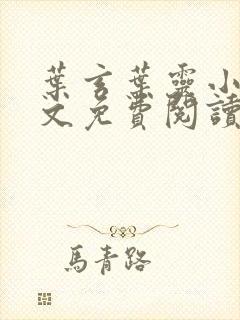 葉言葉靈小
文免費閱讀
馬青路